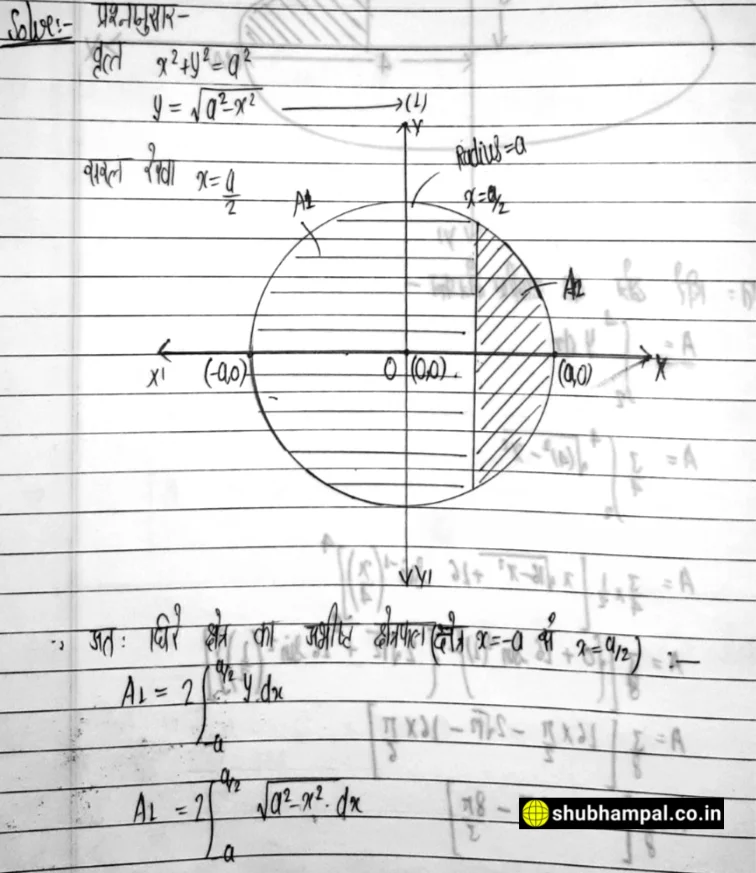 Solve:- प्रश्नानुसार-
वृत्त x²+y²=a²
y = √a²-x² ⟶(1)
Y
Radius=a
सरल रेखा x=a/2
A1
x=a/2
A2
X' (-a,0) O (0,0) (a,0) X
Y'
∴ अतः घिरे क्षेत्र का अभीष्ट क्षेत्रफल (क्षेत्र x=-a से x=a/2) :-
A1 = 2∫_{-a}^{a/2} y.dx
A1 = 2∫_{-a}^{a/2} √a²-x². dx
shubhampal.co.in